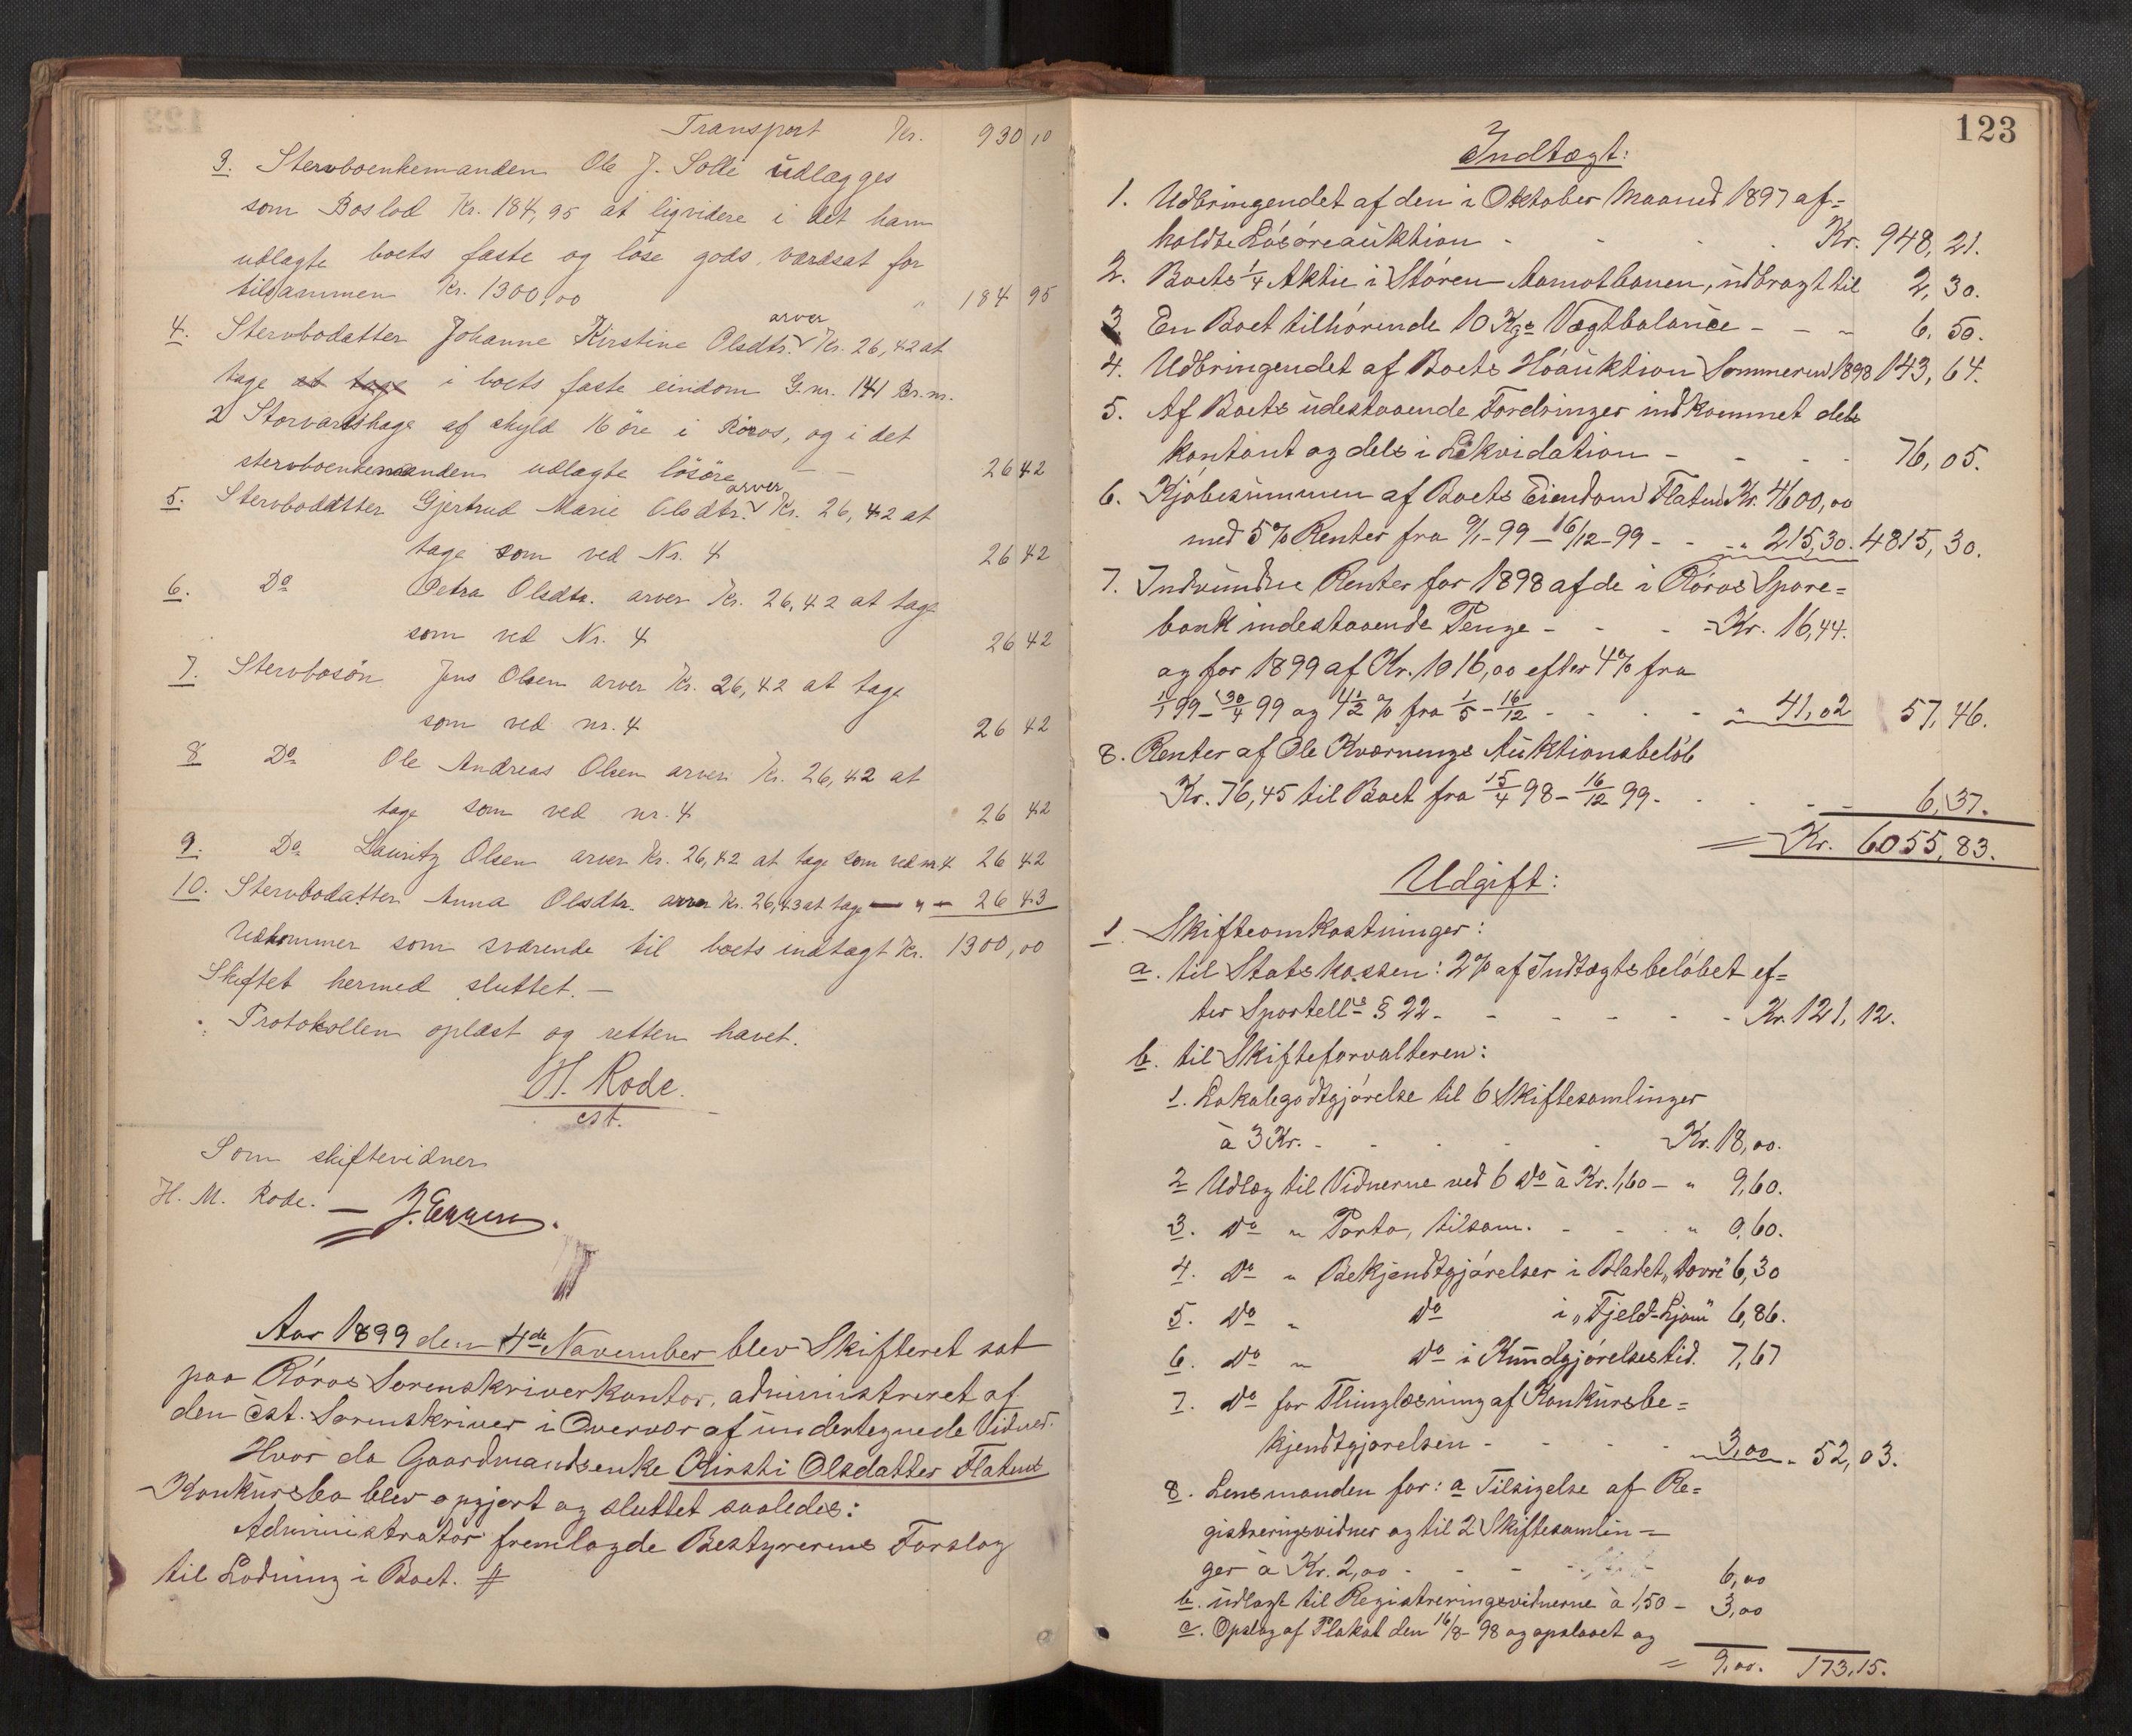 Transport Kr. 930,10
3. Stervboenkemanden Ole J. Solli udlægges
som Boslod Kr. 184,95 at ligvidere i det ham
udlagte boets faste og løse gods, værdsat for
tilsammen Kr. 1300,00 " 184 95
4. Stervbodatter Johanne Kirstine Olsdtr. arver Kr. 26,42 at
tage at tage i boets faste eiendom G.nr. 141 Br.nr.
2 Storvartshage af skyld 16 öre i Röros, og i det
stervboenkemanden udlagte lösöre — — 26 42
5. Stervbodatter Gjertrud Marie Olsdtr. arver Kr. 26,42 at
tage som ved Nr. 4 26 42
6. Do Petra Olsdtr. arver Kr. 26,42 at tage
som ved Nr. 4 26 42
7. Stervbosön Jens Olsen arver Kr. 26,42 at tage
som ved nr. 4 26 42
8 Do Ole Andreas Olsen arver Kr. 26,42 at
tage som ved nr. 4 26 42
9. Do Lauritz Olsen arver Kr. 26,42 at tage som ved nr 4 26 42
10. Stervbodatter Anna Olsdtr. arver Kr. 26,43 at tage — " — 26 43
Vedkommer som svarende til boets indtægt Kr. 1300,00
Skiftet hermed sluttet.—
Protokollen oplæst og retten hævet.
H. Rode.
cst.
Som skiftevidner
H. M. Rode. — J. Eggen.
Aar 1899 den 4de November blev Skifteret sat
paa Röros Sorenskriverkontor, administreret af
den cst. Sorenskriver i Overvær af undertegnede Vidner.
Hvor da Gaardmandsenke Kirsti Olsdatter Flatens
Konkursbo blev opgjort og sluttet saaledes:
Administrator fremlagde Bestyrerens Forslag
til Lodning i Boet. #
123
Indtægt:
1. Udbringendet af den i Oktober Maaned 1897 af=
holdte Lösöreauktion - - - Kr. 948,21.
2. Boets 1/4 Aktie i Stören Aamotbanen, udbragt til 2,30.
3. En Boet tilhörende 10 Kgs Vægtbalance - - - 6,50.
4. Udbringendet af Boets Höauktion Sommeren 1898 143,64.
5. Af Boets udestaaende Fordringer indkommet dels
kontant og dels i Likvidation - - - 76,05.
6. Kjöbesummen af Boets Eiendom Flaten Kr. 4600,00
med 5% Renter fra 9/1-99 - 16/12-99 - - " 215,30. 4815,30.
7. Indvundne Renter for 1898 af de i Röros Spare=
bank indestaaende Penge - - - Kr. 16,44.
og for 1899 af Kr. 1016,00 efter 4% fra
1/1 99 - 30/4 99 og 4 1/2 % fra 1/5 - 16/12 - - - " 41,02 57,46.
8. Renter af Ole Kværnengs Auktionsbelöb
Kr. 76,45 til Boet fra 15/4 98 - 16/12 99 - - - - 6,37.
= Kr. 6055,83.
Udgift:
1. Skifteomkostninger:
a. til Statskassen: 2% af Indtægtsbelöbet ef=
ter Sportell § 22 - - - - - - Kr. 121,12.
b. til Skifteforvalteren:
1. Lokalegodtgjörelse til 6 Skiftesamlinger
à 3 Kr. - - - - - Kr. 18,00.
2 Udlæg til Vidnerne ved 6 do à Kr. 1,60 - " 9,60.
3. do " Porto, tilsam. - - - " 0,60.
4. do " Bekjendtgjörelser i Bladet „Dovre" 6,30
5. do " do i „Fjeld-Ljom" 6,86.
6. do " do i Kundgjörelsestid. 7,67
7. do for Thinglæsning af Konkursbe=
kjendtgjörelsen - - - - " 3,00 " 52,03.
8. Lensmanden for: a Tilsigelse af Re=
gistreringsvidner og til 2 Skiftesamlin=
ger à Kr. 2,00 - - - 6,00
b. udlagt til Registreringsvidnerne à 1,50 - 3,00
c. Opslag af Plakat den 16/8-98 og opslaaet og
= 9,00. 173,15.